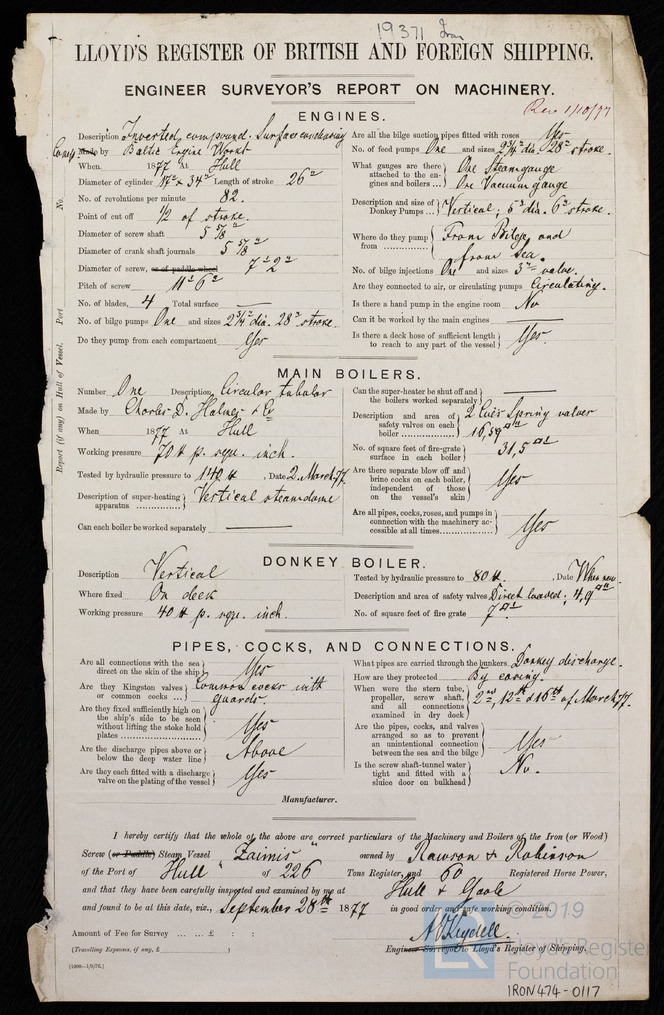 19371 Iron
LLOYD'S REGISTER OF BRITISH AND FOREIGN SHIPPING.
ENGINEER SURVEYOR'S REPORT ON MACHINERY.
Rec 1/10/77
ENGINES.
Description Inverted, compound. Surface condensing
Comp. Made by Baltic Engine Works
When 1877 At Hull
Diameter of cylinder 17" & 34" Length of stroke 26"
No. of revolutions per minute 82.
Point of cut off 1/2 of stroke.
Diameter of screw shaft 5 7/8"
Diameter of crank shaft journals 5 7/8"
Diameter of screw, or of paddle wheel 7' 2"
Pitch of screw 11' 6"
No. of blades, 4 Total surface
No. of bilge pumps One and sizes 2 3/4" dia. 28" stroke.
Do they pump from each compartment Yes
Are all the bilge suction pipes fitted with roses Yes
No. of feed pumps One and sizes 2 3/4" dia. 28" stroke.
What gauges are there attached to the engines and boilers ... One Steam gauge
One Vacuum gauge
Description and size of Donkey Pumps ... Vertical; 5" dia. 6" stroke.
Where do they pump from ............... From Bilge, and
from Sea.
No. of bilge injections One and sizes 3" valve.
Are they connected to air, or circulating pumps Circulating.
Is there a hand pump in the engine room No
Can it be worked by the main engines
Is there a deck hose of sufficient length to reach to any part of the vessel Yes.
Report (if any) on Hull of Vessel. Port No.
MAIN BOILERS.
Number One Description Circular tubular
Made by Charles D. Holmes & Co
When 1877 At Hull
Working pressure 70 lb p. squ. inch.
Tested by hydraulic pressure to 140 lb. Date 2. March. 77
Description of super-heating apparatus .............. Vertical steamdome
Can each boiler be worked separately
Can the super-heater be shut off and the boilers worked separately
Description and area of safety valves on each boiler ............... 2 Spring valves
16,59 □"
No. of square feet of fire-grate surface in each boiler 31,5 □'
Are there separate blow off and brine cocks on each boiler, independent of those on the vessel's skin Yes
Are all pipes, cocks, roses, and pumps in connection with the machinery accessible at all times............. Yes
DONKEY BOILER.
Description Vertical
Where fixed On deck
Working pressure 40 lb p. squ. inch.
Tested by hydraulic pressure to 80 lb. Date When new.
Description and area of safety valves Direct loaded; 4,9 □"
No. of square feet of fire grate 7 □'
PIPES, COCKS, AND CONNECTIONS.
Are all connections with the sea direct on the skin of the ship Yes
Are they Kingston valves or common cocks ... Common cocks with
guards.
Are they fixed sufficiently high on the ship's side to be seen without lifting the stoke hold plates ........................ Yes
Are the discharge pipes above or below the deep water line Above
Are they each fitted with a discharge valve on the plating of the vessel Yes
What pipes are carried through the bunkers. Donkey discharge.
How are they protected By casing.
When were the stern tube, propeller, screw shaft, and all connections examined in dry dock 2nd, 12th & 16th of March 77.
Are the pipes, cocks, and valves arranged so as to prevent an unintentional connection between the sea and the bilge Yes
Is the screw shaft-tunnel water tight and fitted with a sluice door on bulkhead No.
Manufacturer.
I hereby certify that the whole of the above are correct particulars of the Machinery and Boilers of the Iron (or Wood)
Screw (or Paddle) Steam Vessel "Zaimis" owned by Rawson & Robinson
of the Port of Hull of 226 Tons Register, and 60 Registered Horse Power,
and that they have been carefully inspected and examined by me at Hull & Goole
and found to be at this date, viz., September 28th 1877 in good order and safe working condition.
Amount of Fee for Survey ... ... £ : :
(Travelling Expenses, if any, £ )
Engineer Surveyor to Lloyd's Register of Shipping.
[1000—1/9/76.]
LR © 2019
Lloyd's Register
Foundation
IRON474-0117